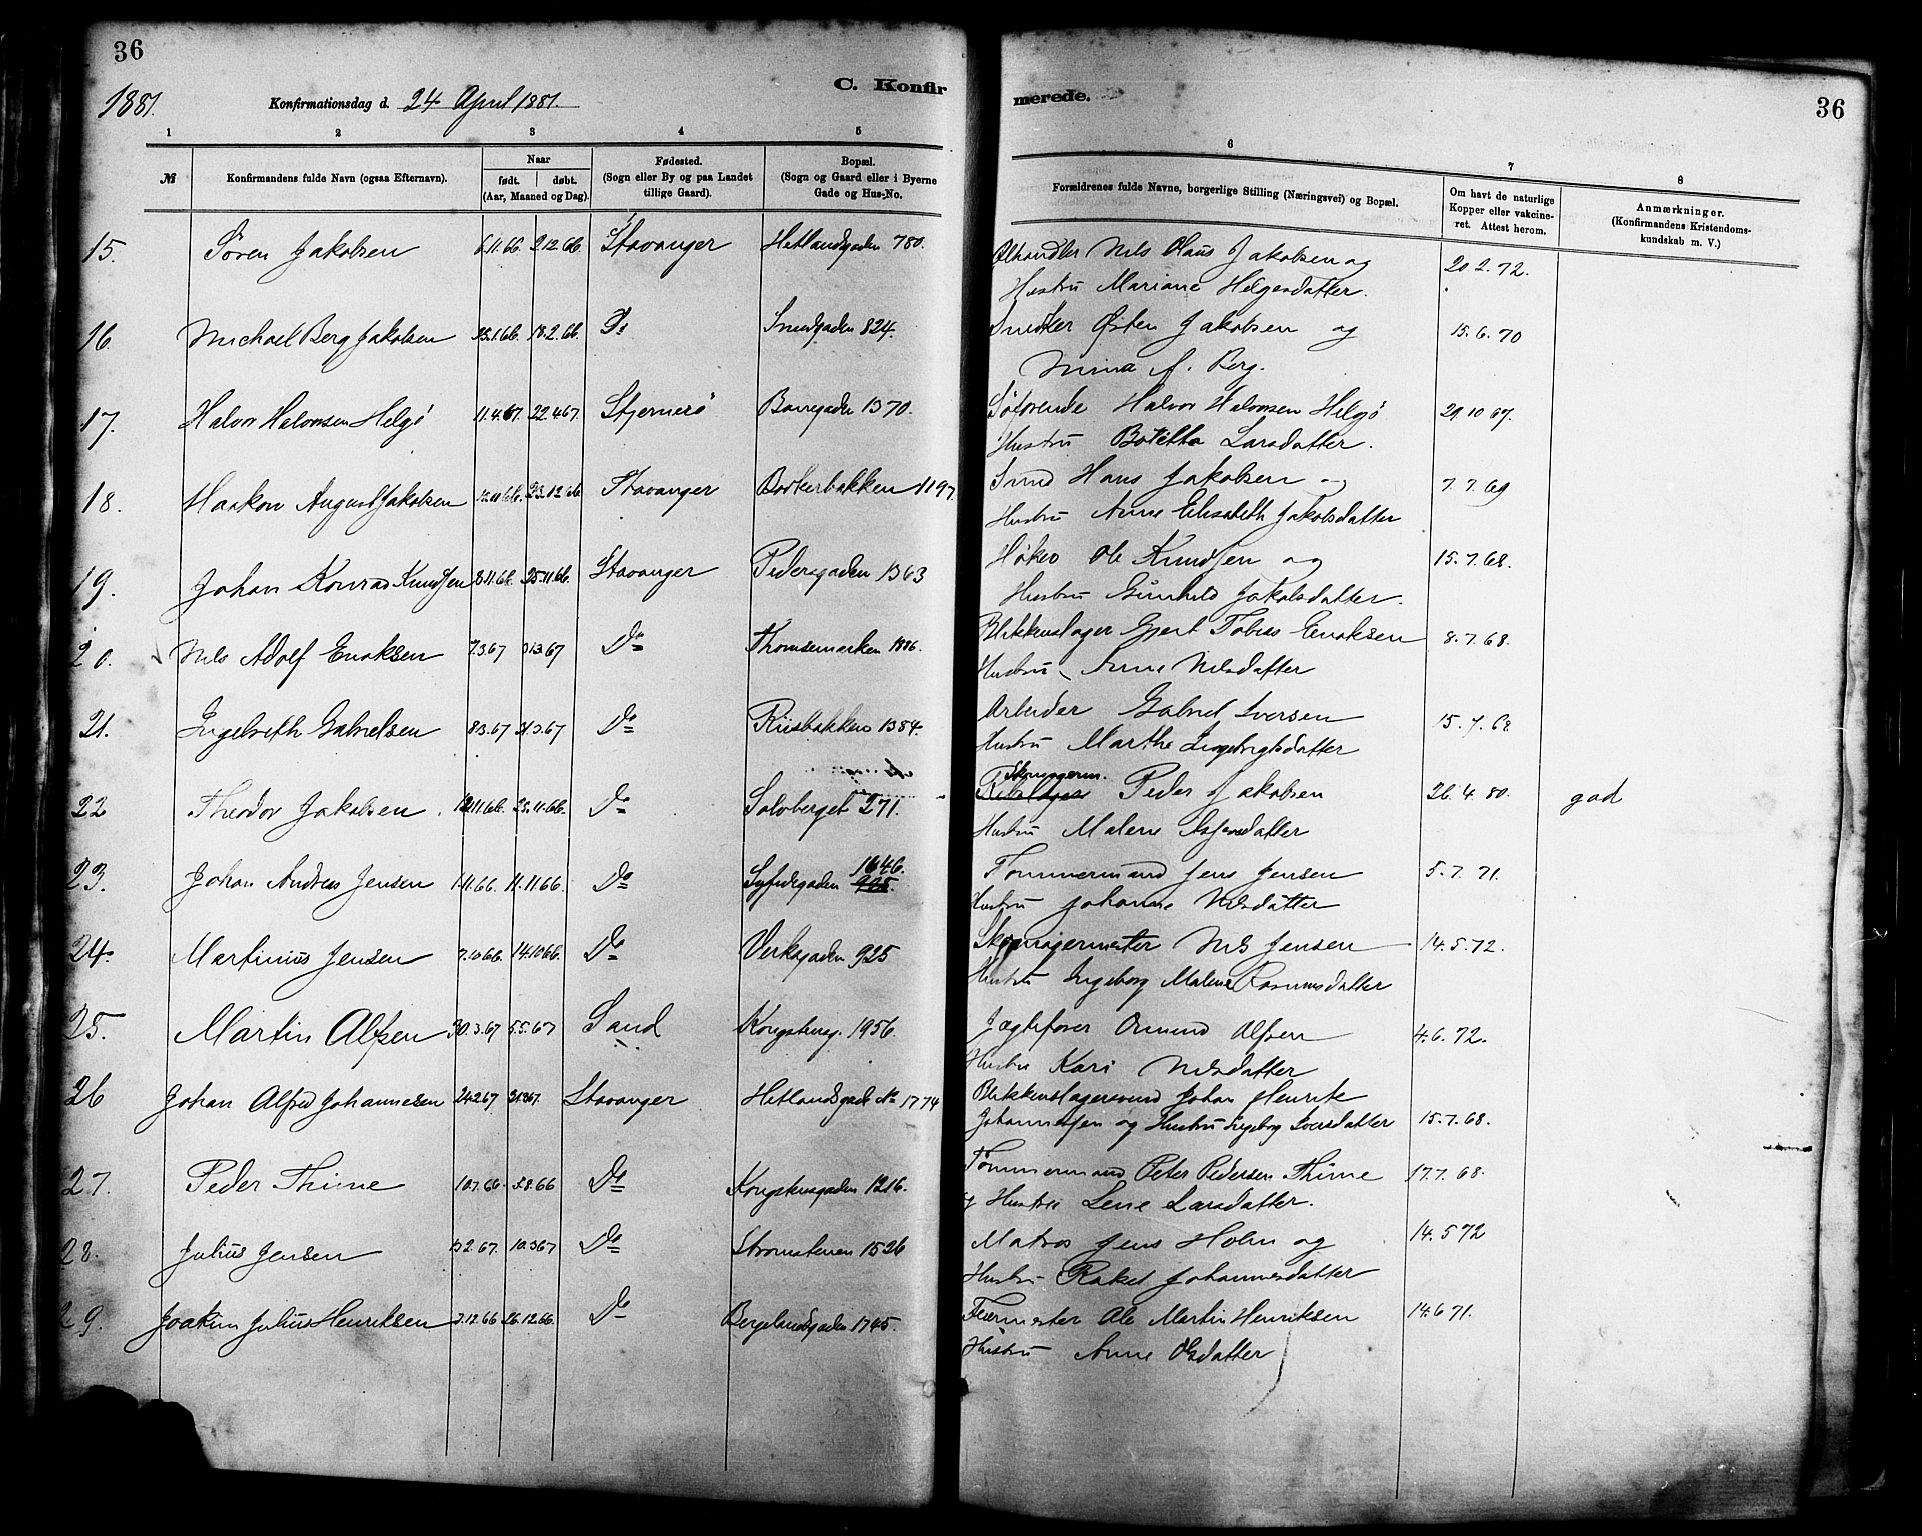 36
1881.
Konfirmationsdag d. 24 April 1881.
C. Konfir
merede.
36
1 2 3 4 5 6 7 8
№
Konfirmandens fulde Navn (ogsaa Efternavn).
Naar
født. døbt.
(Aar, Maaned og Dag).
Fødested.
(Sogn eller By og paa Landet
tillige Gaard).
Bopæl.
(Sogn og Gaard eller i Byerne
Gade og Hus-No.
Forældrenes fulde Navne, borgerlige Stilling (Næringsvei) og Bopæl.
Om havt de naturlige
Kopper eller vakcine-
ret. Attest herom.
Anmærkninger.
(Konfirmandens Kristendoms-
kundskab m. V.)
15. Søren Jakobsen 6.11.66. 2.12.66. Stavanger Hetlandsgaden 780. Ølhandler Nils Olaus Jakobsen og 20.2.72.
Hustru Mariane Helgesdatter.
16. Michael Berg Jakobsen 18.2.66. Do Smedgaden 824. Snedker Østen Jakobsen og 15.6.70
Mina A. Berg.
17. Halvor Halvorsen Helgø 11.4.67. 22.4.67. Stjernerø 1370. Søfarende Halvor Halvorsen Helgø 29.10.67.
Hustru Larsdatter.
18. Haakon August Jakobsen 23.12.66 Stavanger Bøkkerbakken 1197. Smed Hans Jakobsen og 7.7.69
Hustru Anne Elisabeth Jakobsdatter
19. Johan Konrad Knudsen 8.11.66. 25.11.66. Stavanger Pedersgaden 1363 Høker Ole Knudsen og 15.7.68.
Hustru Gunhild Jakobsdatter.
20. Nils Adolf Enoksen 7.3.67 31.3.67 Do 1886. Blikkenslager Gjert Tobias Enoksen 8.7.68.
Hustru Anne Nilsdatter
21. Ingebreth Gabrielsen 8.3.67 31.3.67 Do Riisbakken 1384. Arbeider Gabriel Iversen 15.7.68
Hustru Marthe Ingebrigtsdatter
Skomagerm.
22 Theodor Jakobsen. 12.11.66. 25.11.66. Do Solvberget 271. Peder Jakobsen 26.4.80. god
Hustru Malene Asjersdatter
1646.
23. Johan Andreas Jensen 1.11.66. 11.11.66. Do 905. Tømmermand Jens Jensen 5.7.71.
Hustru Johanne Nilsdatter
24. Martinius Jensen 7.10.66. 14.10.66. Do Verksgaden 925 Skomagermester Nils Jensen 14.5.72.
Hustru Ingeborg Malene Rasmusdatter
25. Martin Alfsen 30.3.67 5.5.67 Sand Kongsberg. 1956. Jægtefører Ommund Alfsen 4.6.72.
Hustru Kari Nilsdatter
26 Johan Alfred Johannesen 24.2.67 31.3.67. Stavanger Hetlandsgade No 1774 Blikkenslagersvend Johan Henrik
Johannesen og Hustru Ingeborg Iversdatter 15.7.68.
27. Peder Thime 10.7.66. 5.8.66 Do Kongstensgaden 1216. Tømmermand Peter Pedersen Thime 17.7.68.
og Hustru Lene Larsdatter.
28. Julius Jensen 10.3.67 Do Strømstenen 1526 Matros Jens Holm og 14.5.72
Hustru Rakel Johannesdatter
29. Joakim Julius Henriksen 3.12.66 26.12.66. Do Bergelandsgaden 1745. Feiermester Ole Martin Henriksen 14.6.71.
Hustru Anne Olsdatter